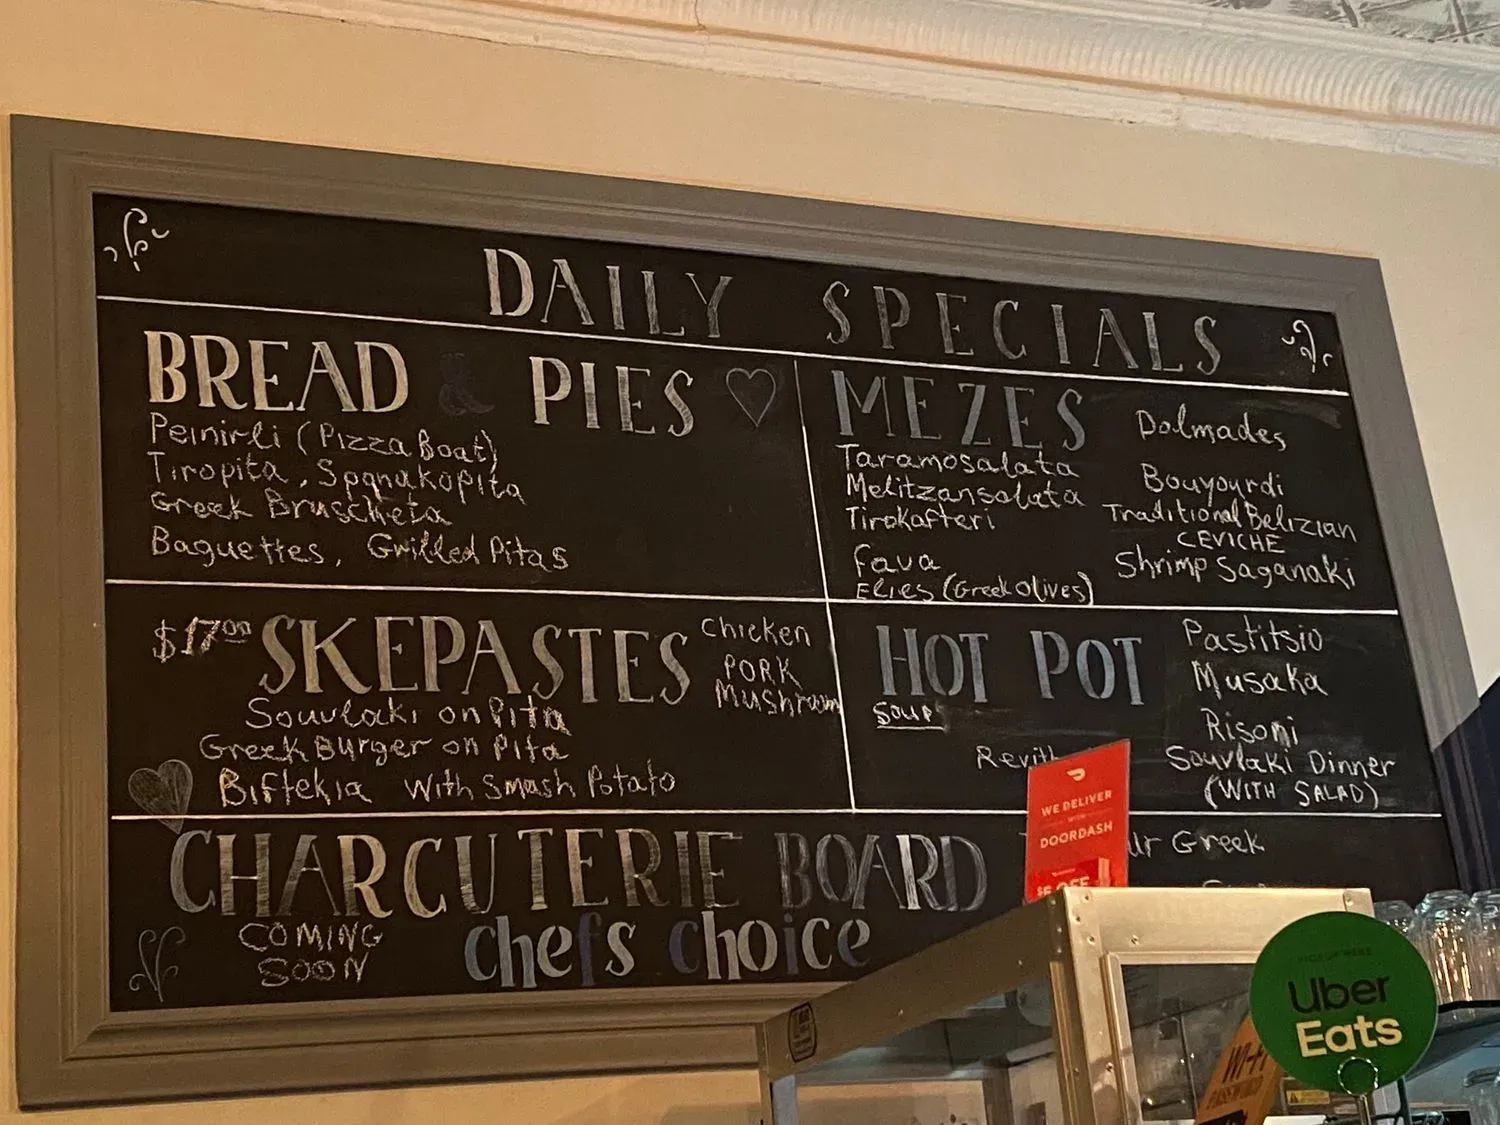 DAILY SPECIALS
BREAD & PIES
Peinirli (Pizza Boat)
Tiropita, Spanakopita
Greek Bruscheta
Baguettes, Grilled Pitas
MEZES
Taramosalata
Melitzansalata
Tirokafteri
Fava
Elies (Greek Olives)
Dolmades
Bouyourdi
Traditional Belizian
CEVICHE
Shrimp Saganaki
$17.00 SKEPASTES
Chicken
PORK
Mushroom
Souvlaki on Pita
Greek Burger on Pita
Biftekia With Smash Potato
HOT POT
SOUP
Revith
Pastitsio
Musaka
Risoni
Souvlaki Dinner
(WITH SALAD)
CHARCUTERIE BOARD
COMING
SOON
chefs choice
ur Greek
WE DELIVER
WITH
DOORDASH
$5 OFF
Uber
Eats
Wi-Fi
PASSWORD